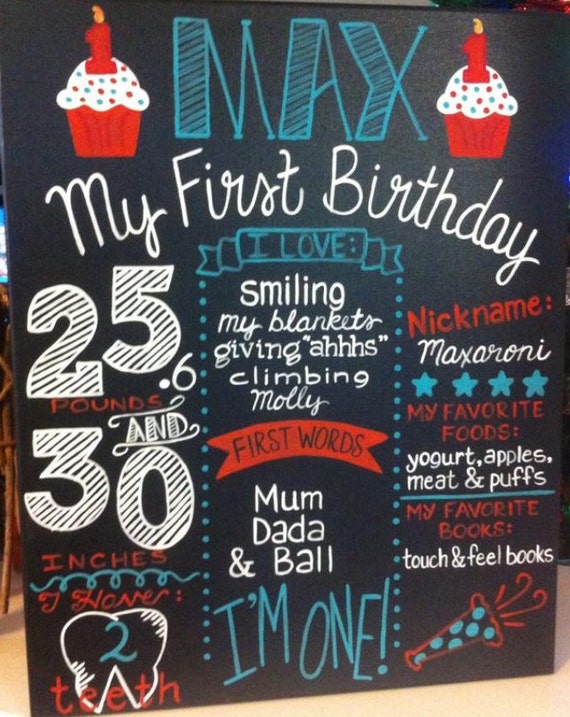 1 MAX 1
My First Birthday
25.6
POUNDS
AND
30
INCHES
I Have:
2
teeth
I LOVE:
smiling
my blankets
giving "ahhhs"
climbing
Molly
FIRST WORDS
Mum
Dada
& Ball
I'M ONE!
Nickname:
Maxaroni
MY FAVORITE
FOODS:
yogurt, apples,
meat & puffs
MY FAVORITE
BOOKS:
touch & feel books